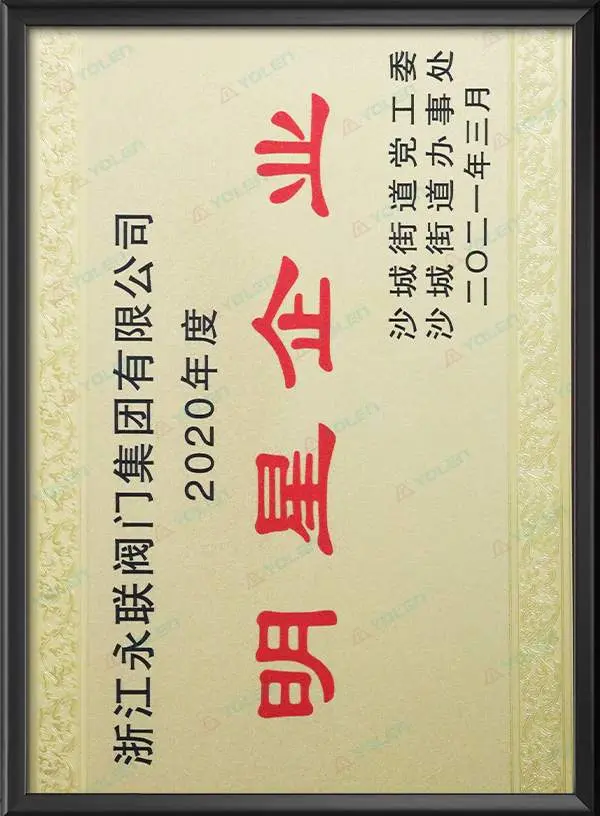 浙江永联阀门集团有限公司
2020年度
明星企业
沙城街道党工委
沙城街道办事处
二〇二一年三月
YOLEN